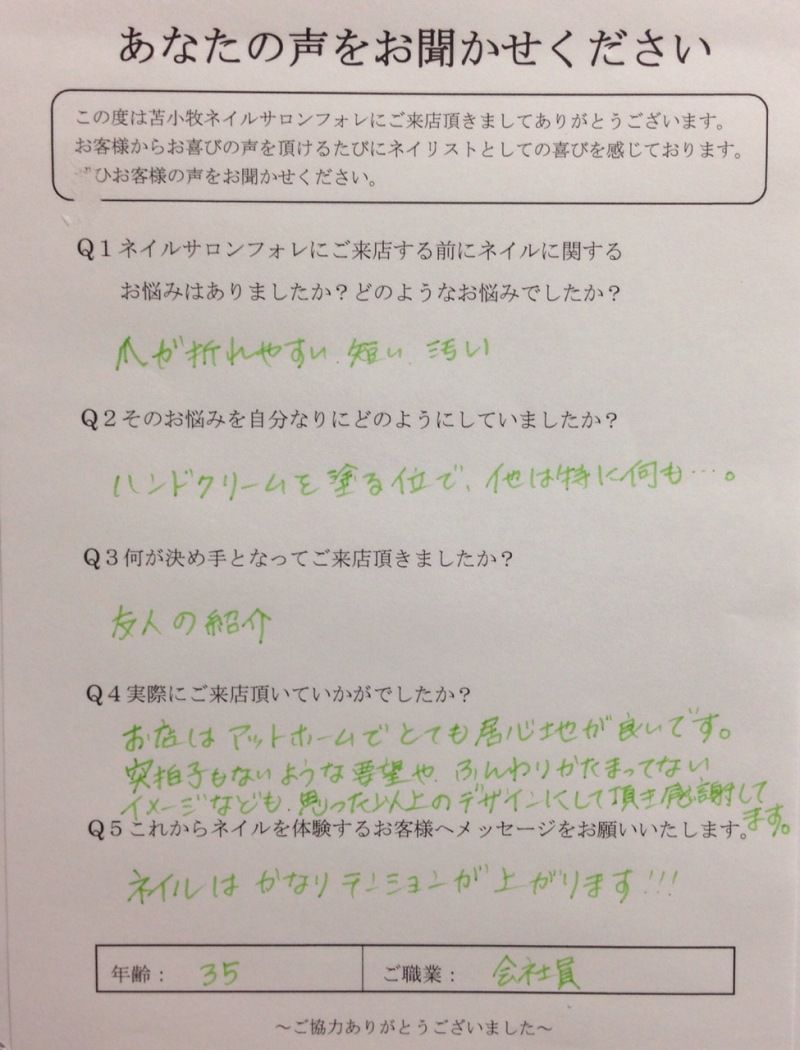 あなたの声をお聞かせください
この度は苫小牧ネイルサロンフォレにご来店頂きましてありがとうございます。
お客様からお喜びの声を頂けるたびにネイリストとしての喜びを感じております。
ひお客様の声をお聞かせください。
Q1ネイルサロンフォレにご来店する前にネイルに関する
お悩みはありましたか?どのようなお悩みでしたか?
爪が折れやすい、短い、汚い
Q2そのお悩みを自分なりにどのようにしていましたか?
ハンドクリームを塗る位で、他は特に何も…。
Q3何が決め手となってご来店頂きましたか?
友人の紹介
Q4実際にご来店頂いていかがでしたか?
お店はアットホームでとても居心地が良いです。
突拍子もないような要望や、ふんわりかたまってない
イメージなども、思った以上のデザインにして頂き感謝して
ます。
Q5これからネイルを体験するお客様へメッセージをお願いいたします。
ネイルはかなりテンションが上がります!!!
年齢: 35 ご職業: 会社員
~ご協力ありがとうございました~